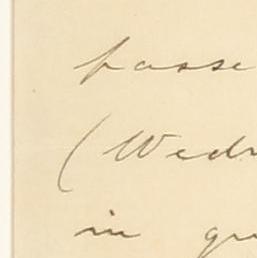 passe
(Wedn
in gr